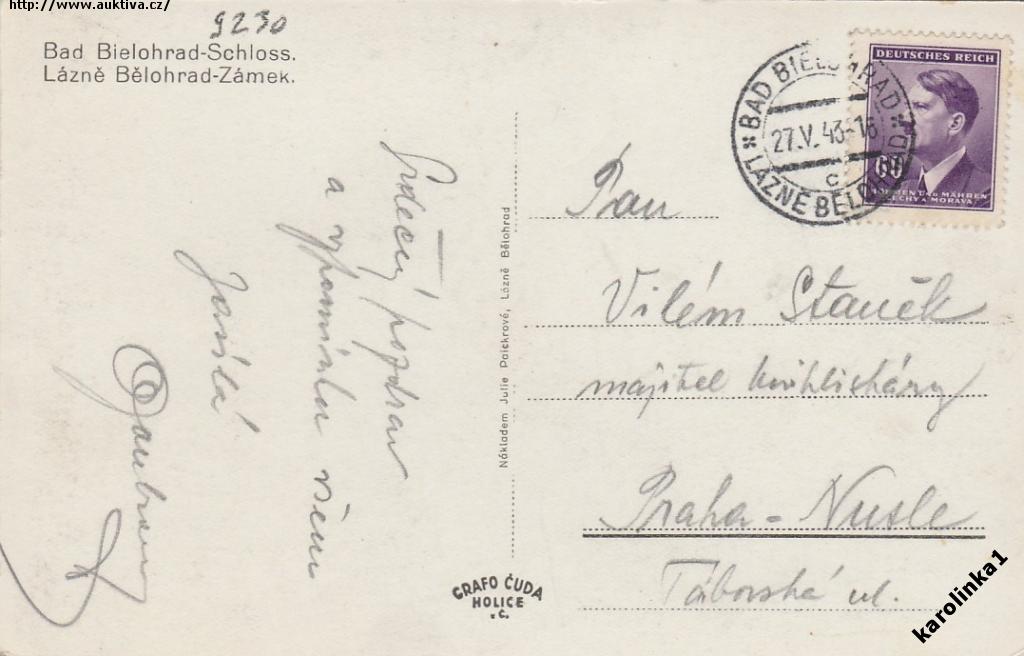 http://www.auktiva.cz/
9230
Bad Bielohrad-Schloss.
Lázně Bělohrad-Zámek.
DEUTSCHES REICH
60
BÖHMEN UND MÄHREN
ČECHY A MORAVA
BAD BIELOHRAD
27.V.43-16
C
LÁZNĚ BĚLOHRAD
Srdečný pozdrav
a vzpomínku všem
Nákladem Julie Paickrové, Lázně Bělohrad
Pan
Vilém Staněk
majitel
Praha-Nusle
Táborská ul.
GRAFO ČUDA
HOLICE
v Č.
karolinka1